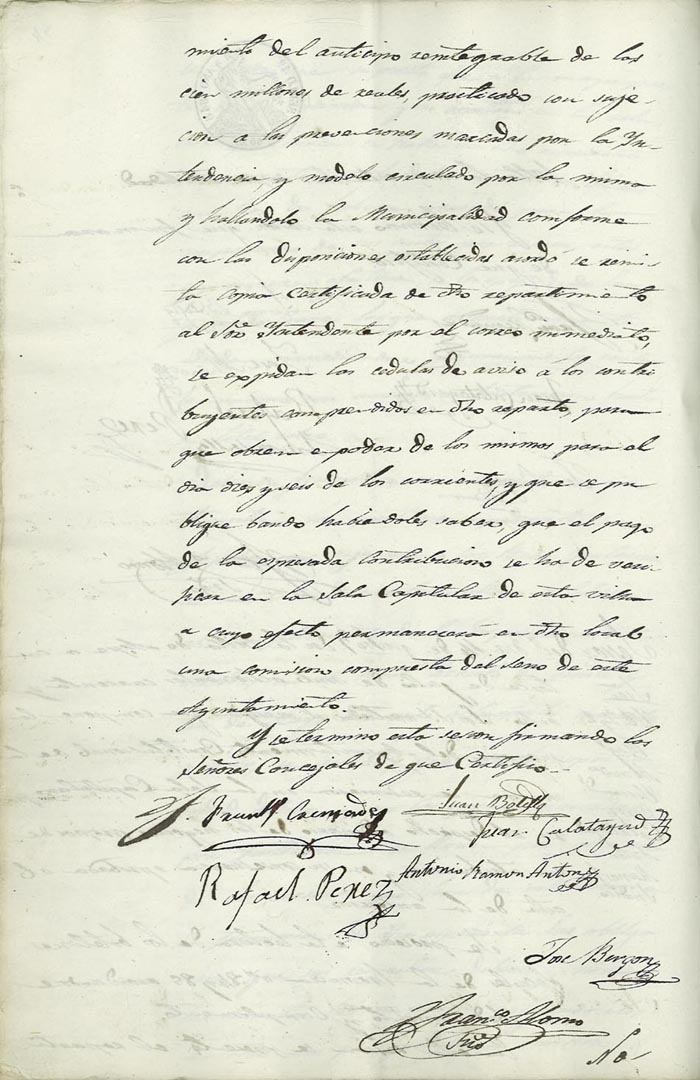 miento del anticipo reintegrable de los
cien millones de reales practicado con suje-
cion a las prevenciones marcadas por la Yn-
tendencia, y modelo circulado por la misma
y hallandolo la Municipalidad conforme
con las disposiciones establecidas acordó se remi-
ta copia certificada de dho repartimiento
al Sor. Yntendente por el correo inmediato,
se expidan las cedulas de aviso á los contri
buyentes comprendidos en dho reparto, para
que obren en poder de los mismos para el
dia diez y seis de los corrientes, y que se pu
blique bando haciendoles saber, que el pago
de la espresada contribucion se ha de veri-
ficar en la Sala Capitular de esta villa
a cuyo efecto permanecerá en dho local
una comision compuesta del seno de este
Ayuntamiento.
Y se termino esta sesion firmando los
Señores Concejales de que Certifico.
Juan Botella
Juan Calatayud
Rafael Perez
Antonio Ramon Anton
Jose
Franco.
Srio
No-